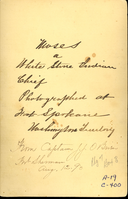 Moses
a
White Stone Indian
Chief
Photographed at
Fort Spokane
Washington Territory
From Captain J. O.
Fort Sherman
A-19
C-400